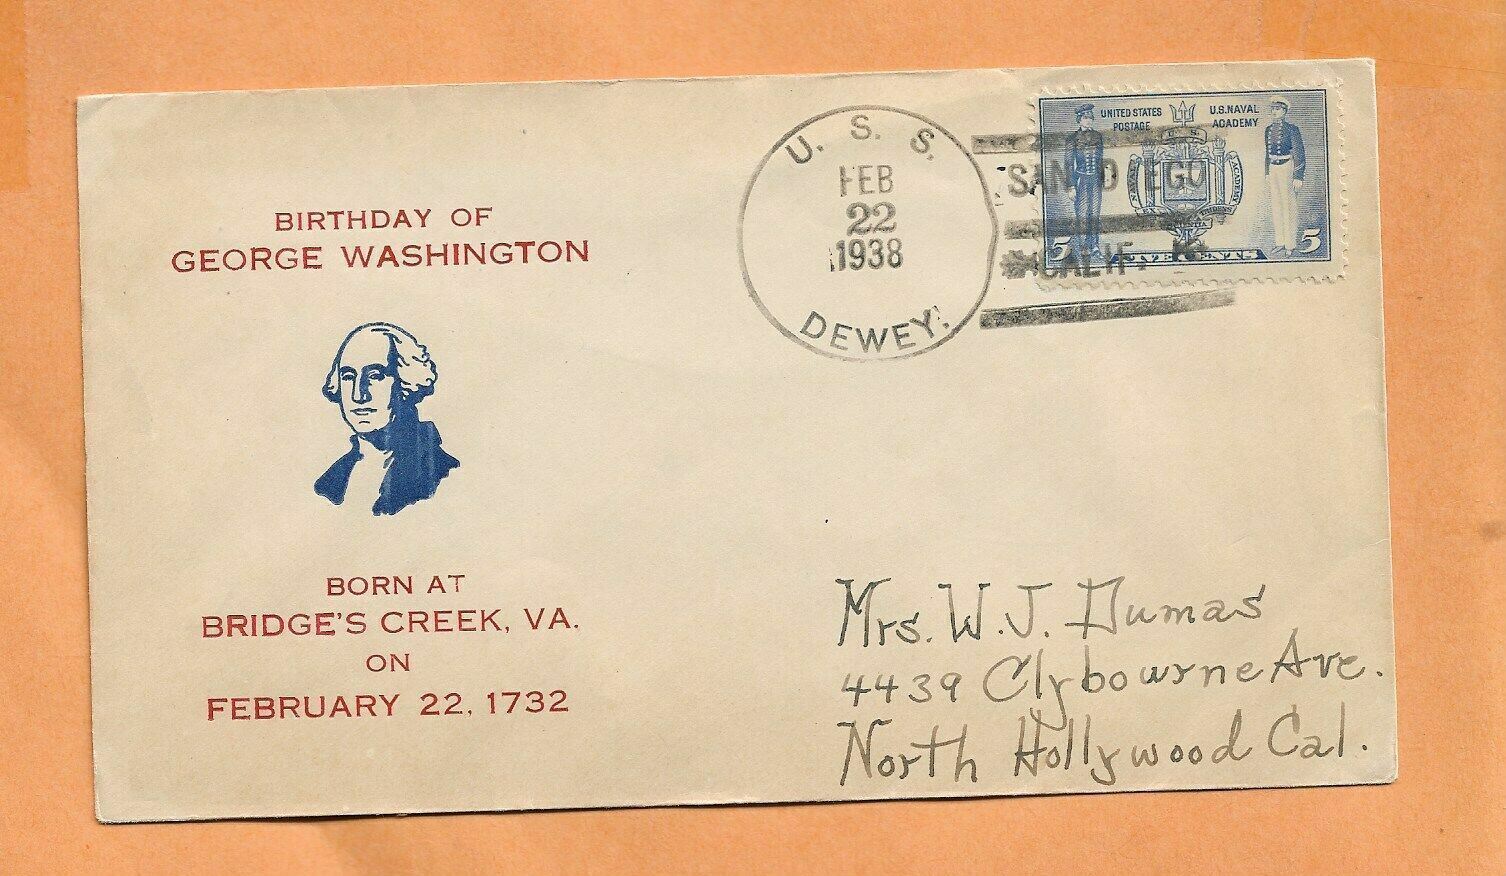 BIRTHDAY OF
GEORGE WASHINGTON
BORN AT
BRIDGE'S CREEK, VA.
ON
FEBRUARY 22, 1732
U. S. S.
FEB
22
1938
DEWEY.
SAN DIEGO
CALIF.
UNITED STATES
POSTAGE
U.S. NAVAL
ACADEMY
U. S.
NAVAL ACADEMY
5 FIVE CENTS 5
Mrs. W. J. Dumas
4439 Clybourne Ave.
North Hollywood Cal.